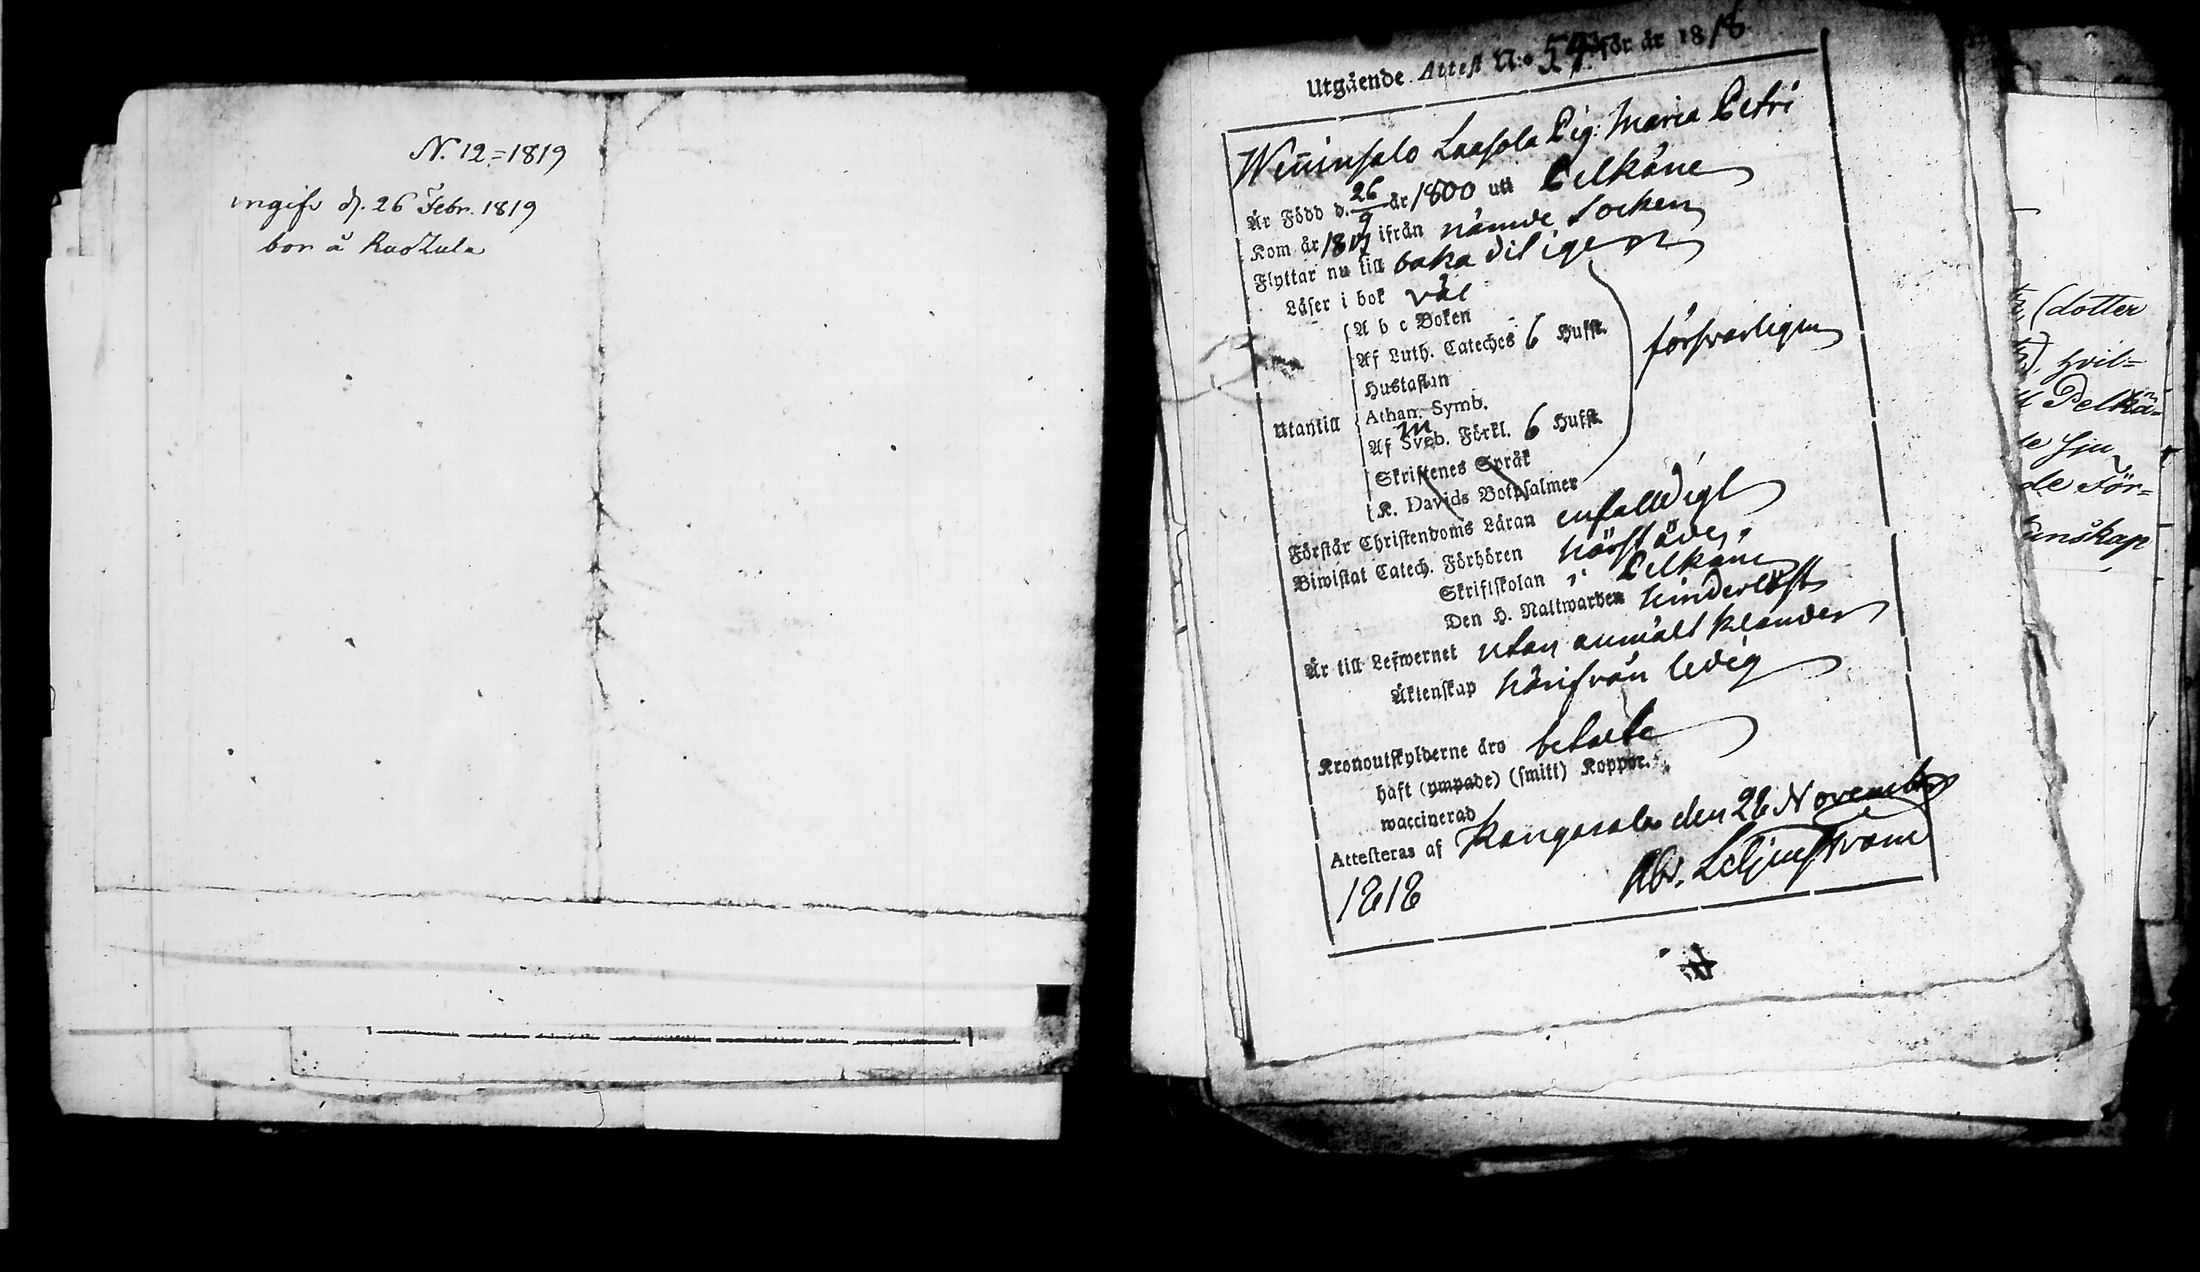 N. 12 = 1819
ingifv d. 26 Febr. 1819
bor å Ruokula
Utgående Attest N:o 54 för år 1818
Weninsalo Laasola Pig: Maria Petri
Är Född d. 26/9 år 1800 uti Pelkäne
Kom år 1817 ifrån nämde Socken
Flyttar nu till baka diligen
Läser i bok väl
Utantill
A b c Boken
Af Luth. Cateches 6 Hufst.
Hustaflan
Athan. Symb.
Af Sveb. Förkl. 6 Hufst.
Skriftenes Språk
K. Davids Botpsalmer
försvarligen
Förstår Christendoms Läran enfalldigt
Biwistat Catech. Förhören härstädes
Skriftskolan i Pelkäne
Den H. Nattwarden hinderlöst
Är till Lefwernet utan anmält klander
Äktenskap härifrån ledig
Kronoutskylderne äro betalte
haft (ympade) (smitt) Koppor.
waccinerad
Attesteras af Kangasala den 26 November
1818
Ab. Liljenstrom
(dotter
hvil=
Pelkä=
de För=
unskap